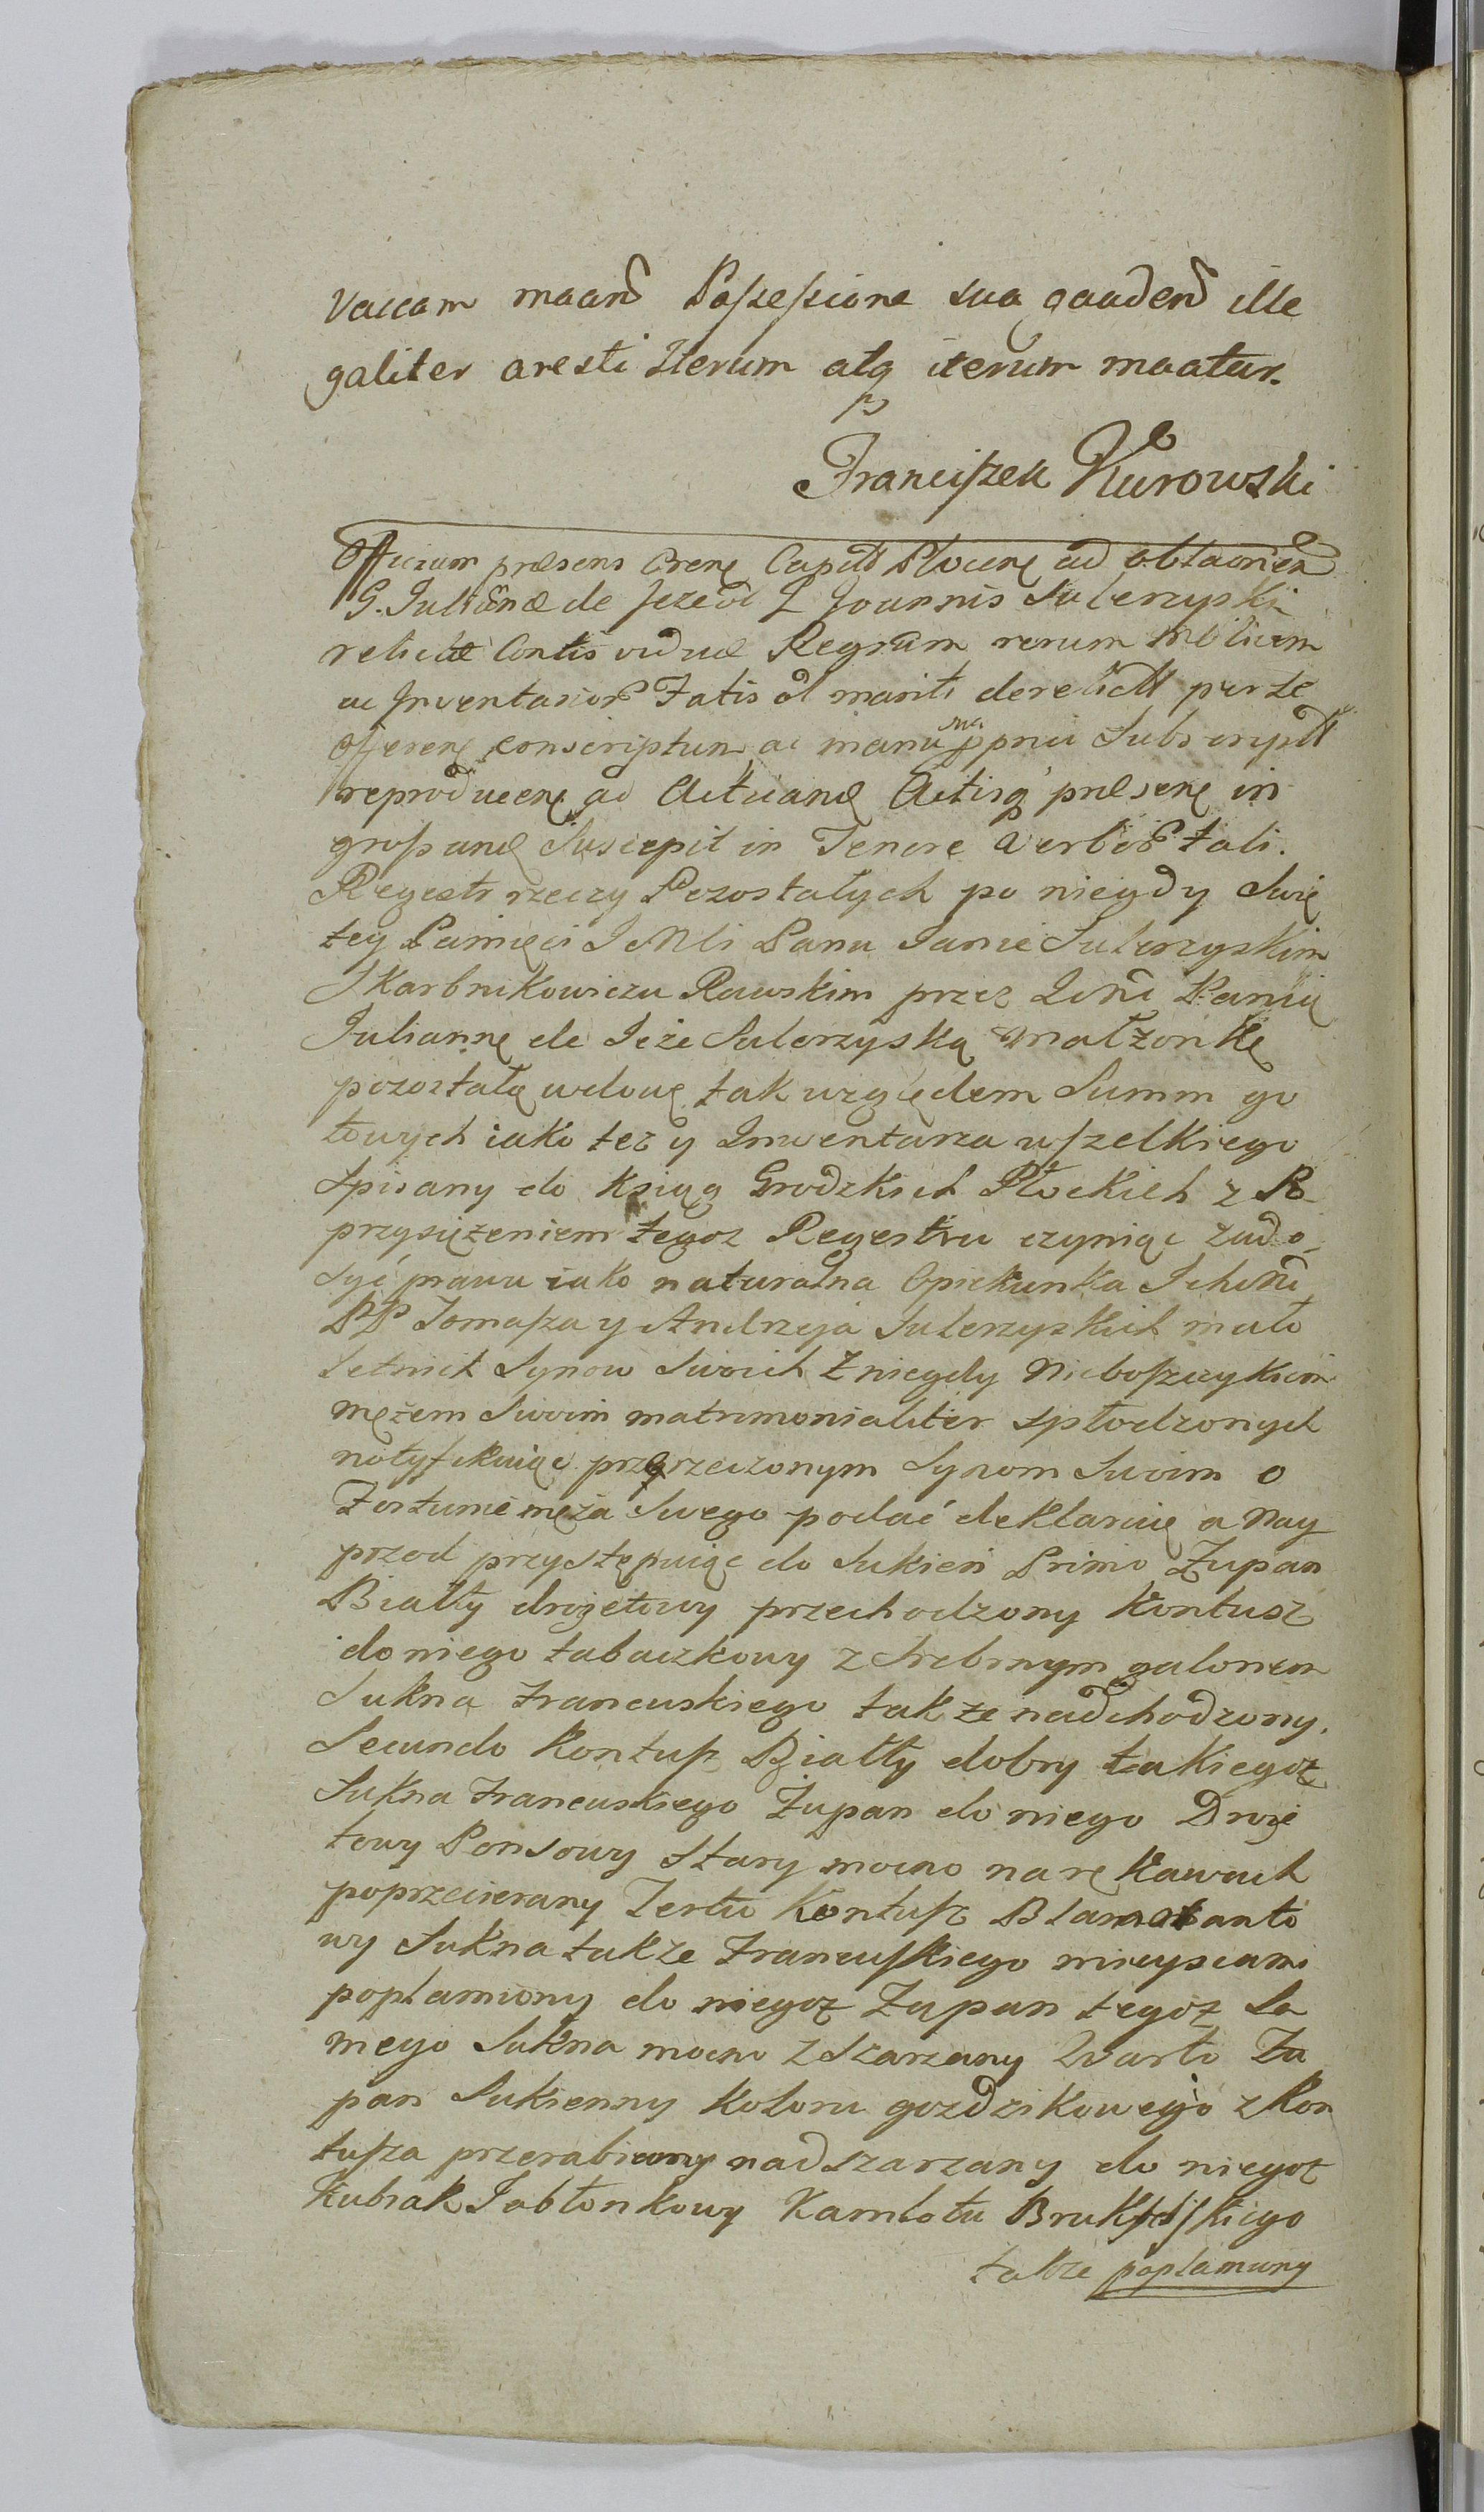 Vaccam maand Possessione sua gauden̄d ille
galiter aresti Iterum atq iterum maatur.
Franciszek Kurowski
Officium præsens Crene Capitt Plocene ad oblaonem
G. Julianæ de Jeże ol G Joannis Sulerzyski
relictæ Contis viduæ Regrum rerum Mbilium
ac Inventarior Fatis ol mariti derelictt per se
offerene conscriptum ac manu sua ppria Subscriptt
reproducene ad Acticand Actisq præsene in
grossand Suscepit in Tenore verbor tali.
Regestr rzeczy Pozostałych po niegdy Swię
tey Pamięci JMci Panu Janie Sulerzyskim
Skarbnikowiczu Rawskim przez Jmć Panią
Juliannę de Jeże Sulerzyską Małżonkę
pozostałą wdowę tak względem Summ go
towych iako też y Inwentarza wszelkiego
Spisany do Ksiąg Grodzkich Płockich z Po
przysiężeniem tegoz Regestru czyniąc zado
syć prawu iako naturalna Opiekunka Ichmć
PP Tomasza y Andrzeja Sulerzyskich mało
Letnich Synow Swoich z niegdy Nieboszczykiem
mężem Swoim matrimonialiter spłodzonych
notyfikuiąc przerzeczonym Synom Swoim o
Fortunie męża Swego podać deklaruię a Nay
przod przystępuiąc do Sukien Primo Zupan
Biały drojetowy przechodzony Kontusz
do niego tabaczkowy z Srebrnym galonem
Sukna Francuskiego także nadchodzony.
Secundo Kontusz Biały dobry takiegoz
Sukna Francuskiego Zupan do niego Droje
towy Ponsowy Stary mocno na rękawach
poprzecierany Tertio Kontusz
wy Sukna także Francuskiego mieyscami
poplamiony do niegoz Zupan tegoz Sa
mego Sukna mocno zszarzany Quarto Zu
pan Sukienny Koloru gozdzikowego z Kon
tusza przerabiany nadszarzany do niegoz
Kubrak Jabłonkowy Kamlotu
także poplamiony